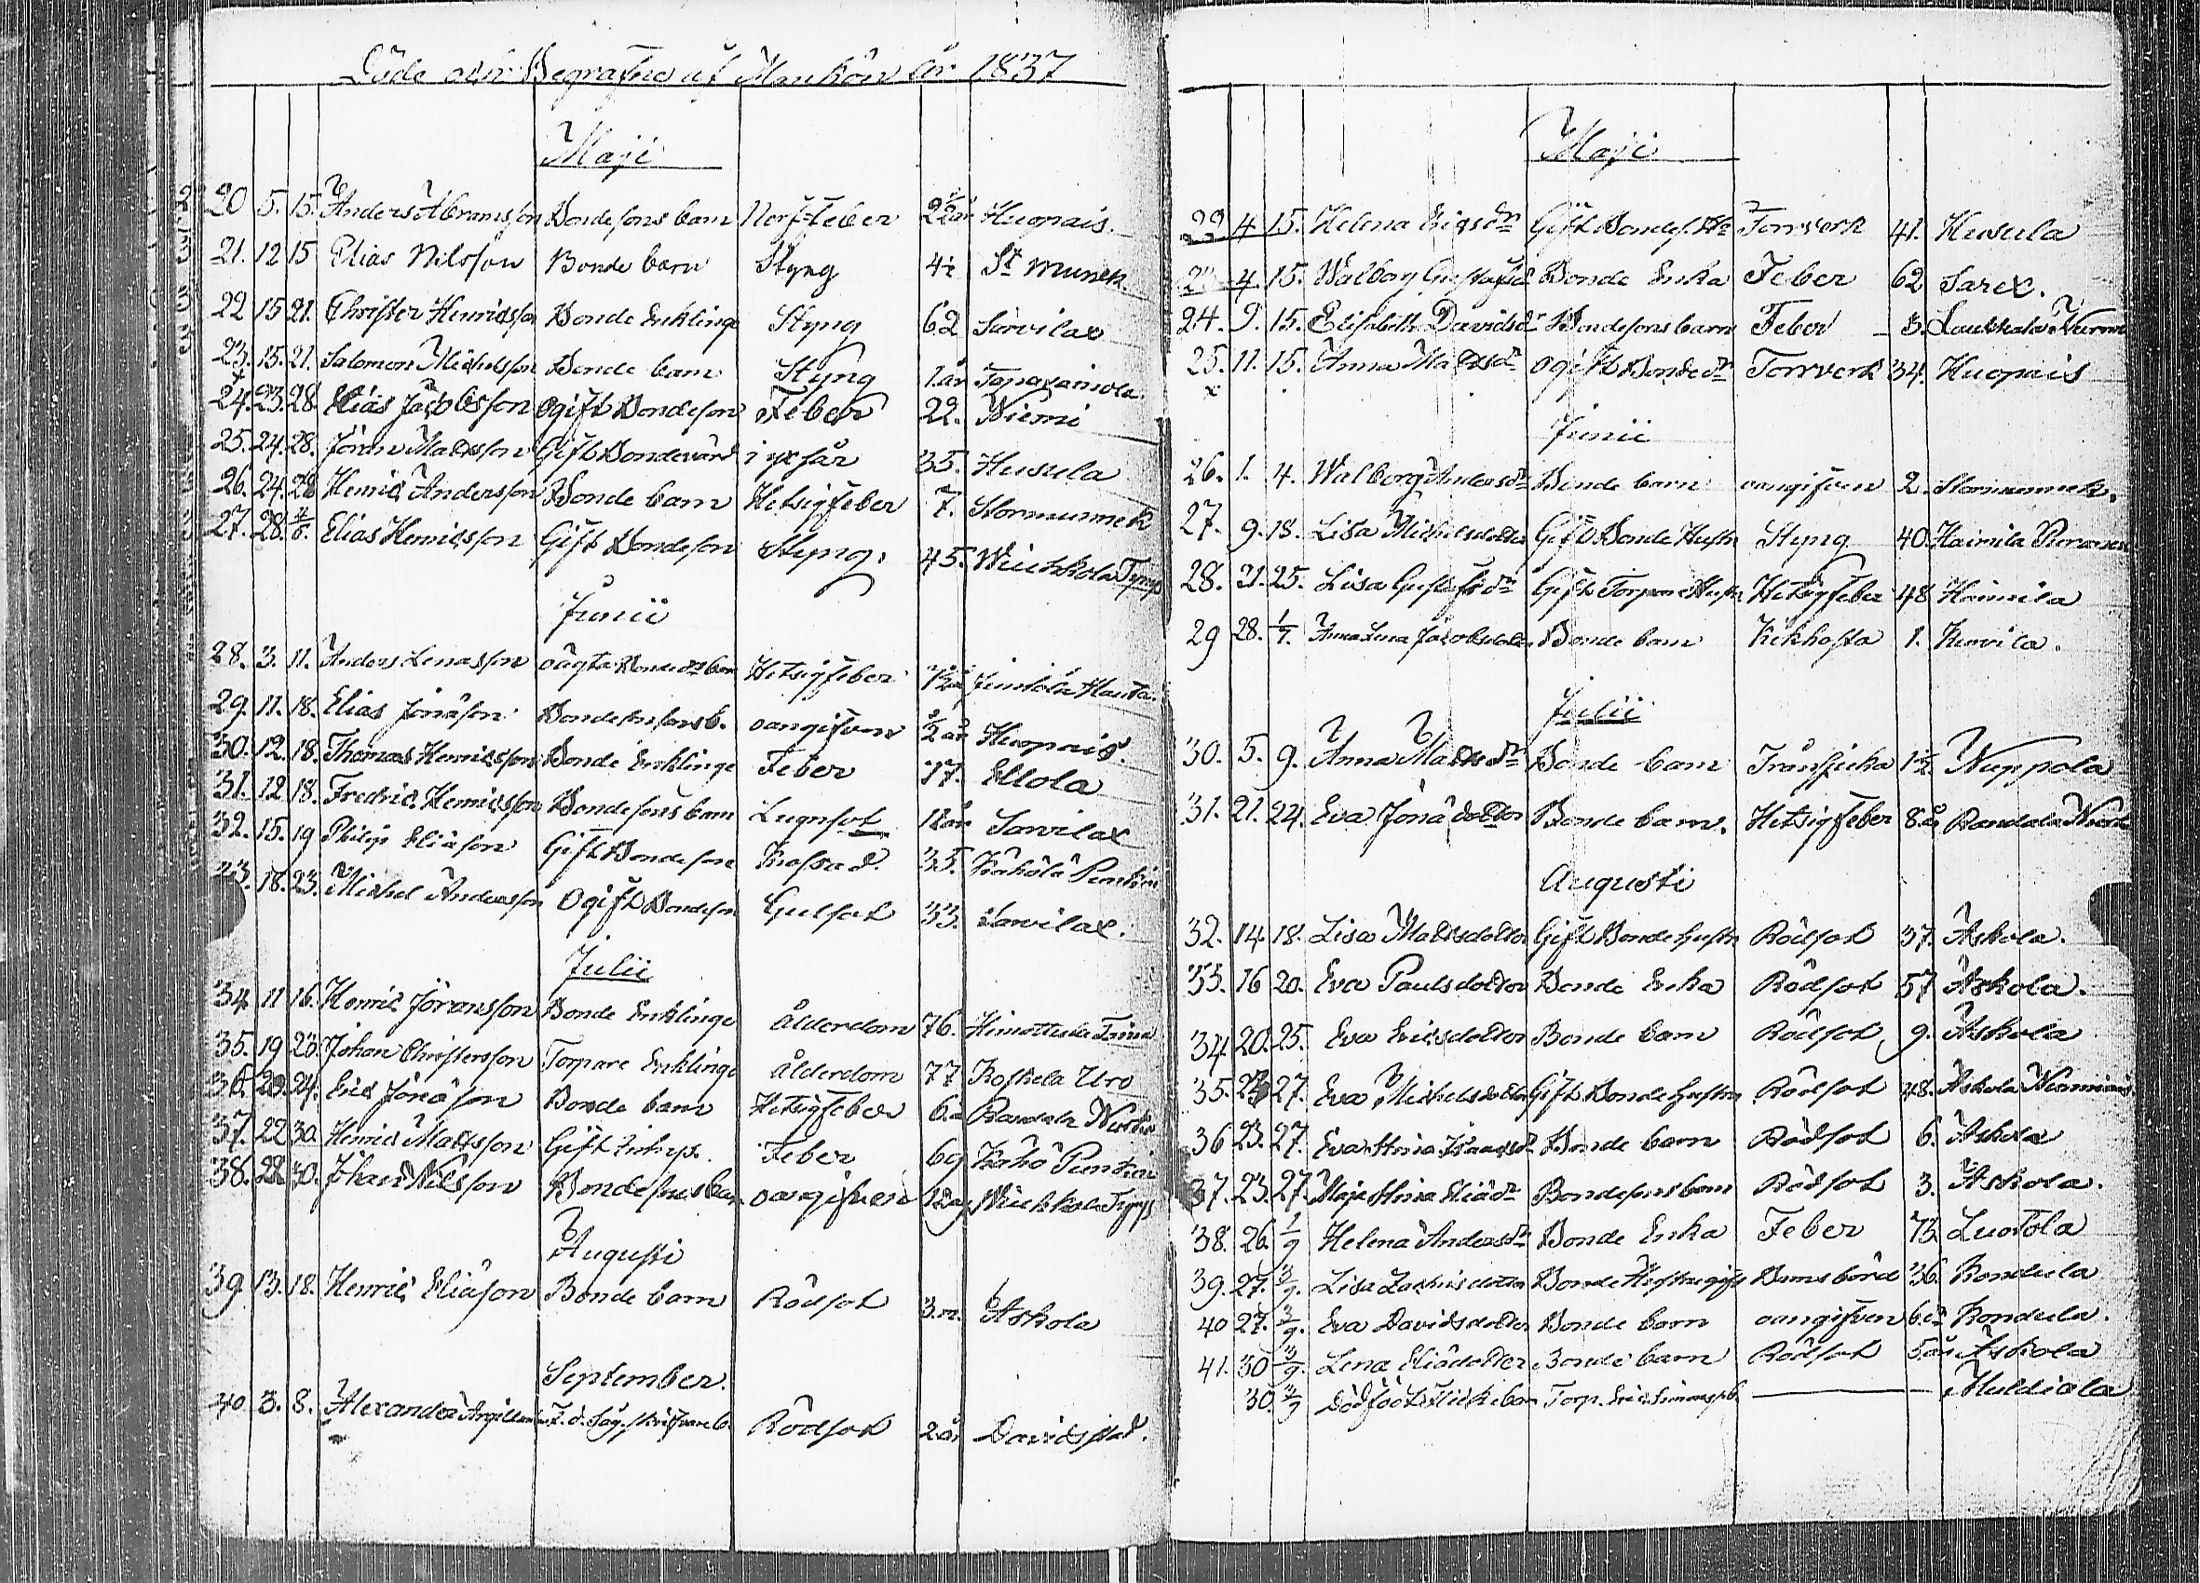 Döde och Begrafne af Mankön år 1837
Maji
20 5. 15. Anders Abramsson Bondesons barn Nerf-Feber 2½ år Huopais.
21. 12 15 Elias Nilsson Bonde barn Styng 4½ St. Munek
22 15 21. Christer Henricsson Bonde Enklinge Styng 62 Sarvilax
23. 15. 21. Salomon Michelsson Bonde barn Styng 1 år
24. 23. 28 Elias Jacobsson Ogift Bondeson Feber 22. Niemi
25. 24. 28. Jöran Mattsson Gift Bondevärd 35. Husula
26. 24. 28 Henric Andersson Bonde barn Hetsigfeber 7. Stormunnek
27. 28. 4/6. Elias Henricsson Gift Bondeson Styng. 45. Wickkola Tyrys
Junii
28. 3. 11. Anders Lenasson oägta Bonded:rs barn Hetsigfeber
29. 11. 18. Elias Jonasson oangifven ½ år Huopais.
30. 12. 18. Thomas Henricsson Bonde Enklinge Feber 77. Ellola
31. 12 18. Fredric Henricsson Bondesons barn Lugnsot 12 år Sarvilax
32. 15. 19 Philip Eliäson Gift Bondeson 35. Kähölä Penttin
33. 18. 23. Michel Andersson Ogift Bondeson Gulsot 33. Sarvilax.
Julii
34 11 16. Henric Jöransson Bonde Enklinge ålderdom 76.
35. 19 23. Johan Christersson Torpare Enklinge ålderdom 77 Koskela Uro
36. 20. 24. Eric Jonäson Bonde barn Hetsigfeber 6. Randala
37. 22 30. Henric Mattsson Gift Feber 69 Kähö Penttin
38. 28 30. Johan Nilsson Bondesons barn oangifven Wickkola Tyrys
Augusti
39. 13. 18. Henric Eliäson Bonde barn Rödsot 3. m. Askola
September.
40. 3. 8. Alexander Rödsot 2 år Davidstad.
Maji
22 4 15. Helena Ericsdr Gift Torrverk 41. Husula
23 4. 15. Walborg Gustafsd Bonde Enka Feber 62 Sarex.
24. 9. 15. Elisabeth Davidsdr Bondesons barn Feber 3. Laukkala Nurmi
25. 11. 15. Anna Mattsdr Ogift Bondedr Torrverk 34. Huopais
Junii
26. 1. 4. Walborg Andersdr Bonde barn oangifven 2. Stormunnek.
27. 9. 18. Lisa Michelsdotter Gift Bonde Hustr Styng 40. Haimila
28. 21. 25. Lisa Gustafsdr Gift Torpare Hustr Hetsigfeber 48 Haimila
29 28. 1/7. Anna Lena Jacobsdotter Bonde barn Kikhosta 1. Kurvila.
Julii
30. 5. 9. Anna Mattsdr Bonde barn Trånsjuka 1½ Nuppola
31. 21. 24. Eva Jonädotter Bonde barn. Hetsigfeber 8 år Randala
Augusti
32. 14. 18. Lisa Mattsdotter Gift Bonde hustr Rödsot 37. Askola.
33. 16 20. Eva Paulsdotter Bonde Enka Rödsot 57 Askola.
34 20. 25. Eva Ericsdotter Bonde barn Rödsot 9. Askola
35. 23 27. Eva Michelsdotter Gift Bonde hustru Rödsot 48. Askola
36 23. 27. Eva Stina Isaacsdr Bonde barn Rödsot 6. Askola
37. 23. 27. Maja Stina Eliädr Bondesons barn Rödsot 3. Askola.
38. 26. 1/9 Helena Andersdr Bonde Enka Feber 73. Luotola
39. 27. 3/9. Lisa Barnsbörd 36. Kondula
40 27. 3/9. Eva Davidsdotter Bonde barn oangifven 6. Kondula.
41. 30 3/9. Lena Eliädotter Bonde barn Rödsot 5 år Askola
30. 3/9 Dödfödt Flickebarn Torp. Muldiola